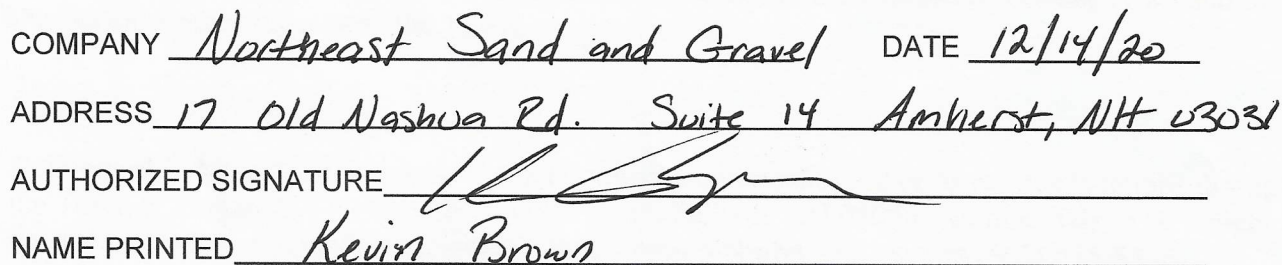 COMPANY Northeast Sand and Gravel DATE 12/14/20
ADDRESS 17 Old Nashua Rd. Suite 14 Amherst, NH 03031
AUTHORIZED SIGNATURE
NAME PRINTED Kevin Brown